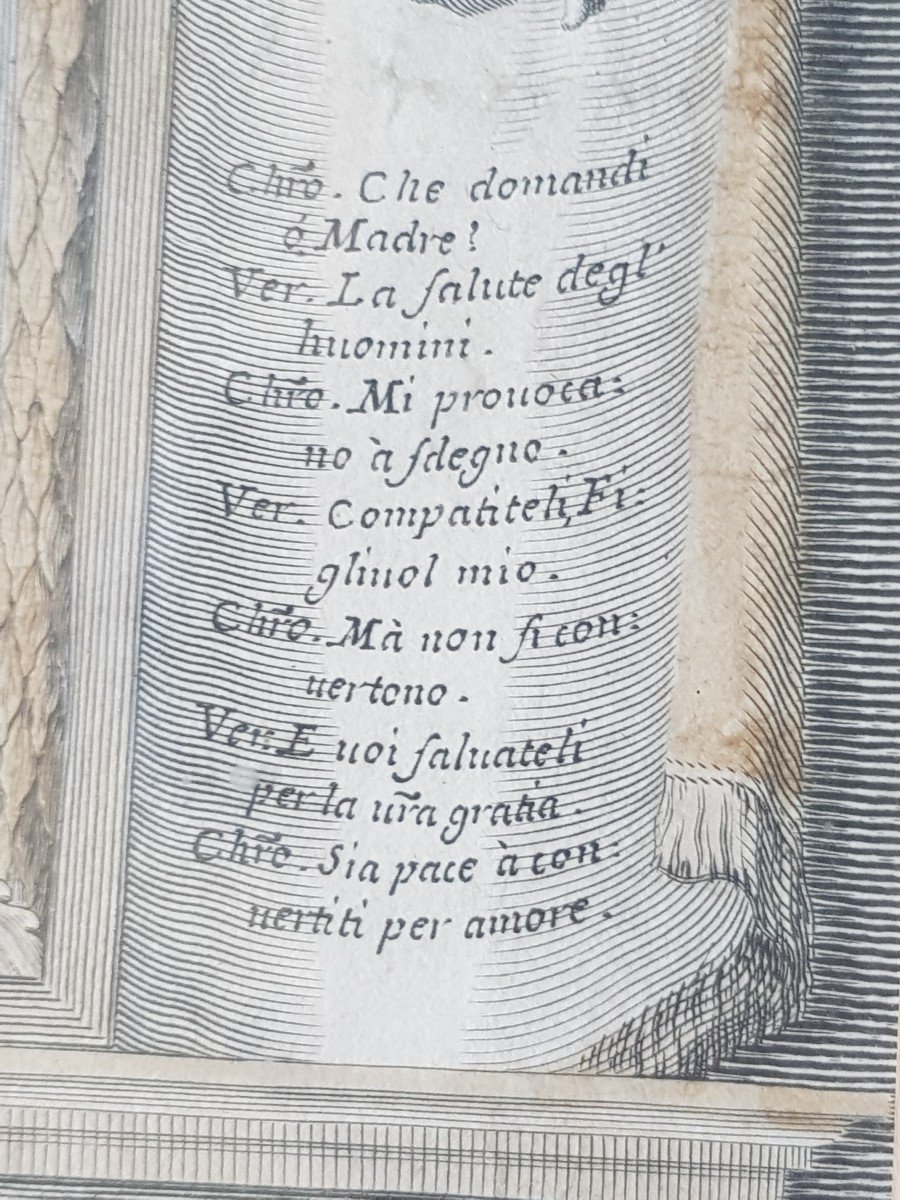 Chr̃o. Che domandi
ó Madre?
Ver. La ſalute degl'
huomini.
Chr̃o. Mi prouoca:
no à ſdegno.
Ver. Compatiteli, Fi:
gliuol mio.
Chr̃o. Mà non ſi con:
uertono.
Ver. E uoi ſaluateli
per la ur̃a gratia.
Chr̃o. Sia pace à con:
uertiti per amore.